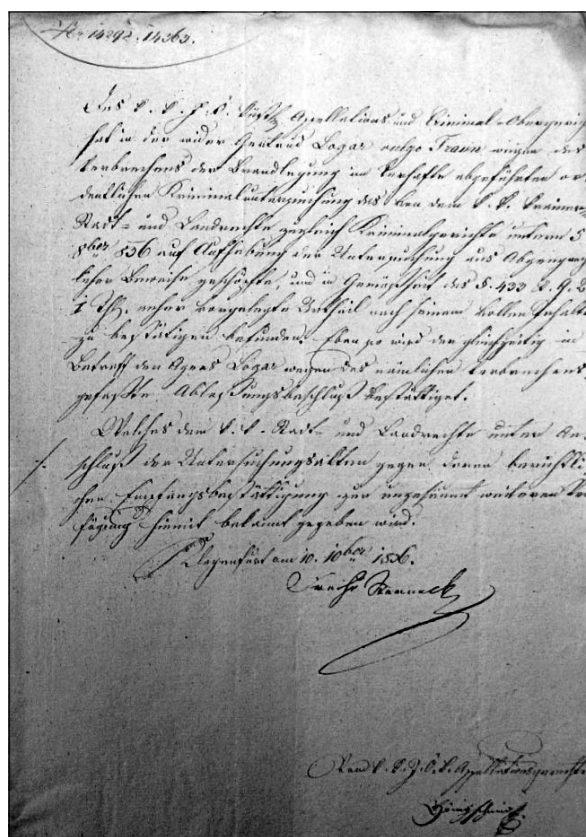 Nr 14292. 14363.
Das k. k. i. ö. küstl. Appellations und Criminal-Obergericht
hat in der wider Gertraud Logar vulgo Traun wegen des
Verbrechens der Brandlegung im Verhafte abgeführten or
dentlichen Kriminaluntersuchung das von dem k. k.
Stadt- und Landrechte zugleich Kriminalgerichte unterm 5
8ber 836 auf Aufhebung der Untersuchung aus Abgang recht
licher Beweise geschöpfte, und in Gemäßheit des §. 433 St. G. B.
I Thl. anher vorgelegte Urtheil nach seinem vollen Inhalte
zu bestätigen befunden. Eben so wird der gleichzeitig in
Betreff der Agnes Logar wegen des nämlichen Verbrechens
gefaßte Ablassungsbeschluß bestättiget.
Welches dem k. k. Stadt- und Landrechte unter An
schluß der Untersuchungsakten gegen deren berichtli
chen Empfangsbestättigung zur ungesäumt weiteren Ver
fügung hiemit bekannt gegeben wird.
Klagenfurt am 10. 10ber 1836.
Freihr Sterneck
Vom k. k. I. Ö. k. Appellationsgerichte